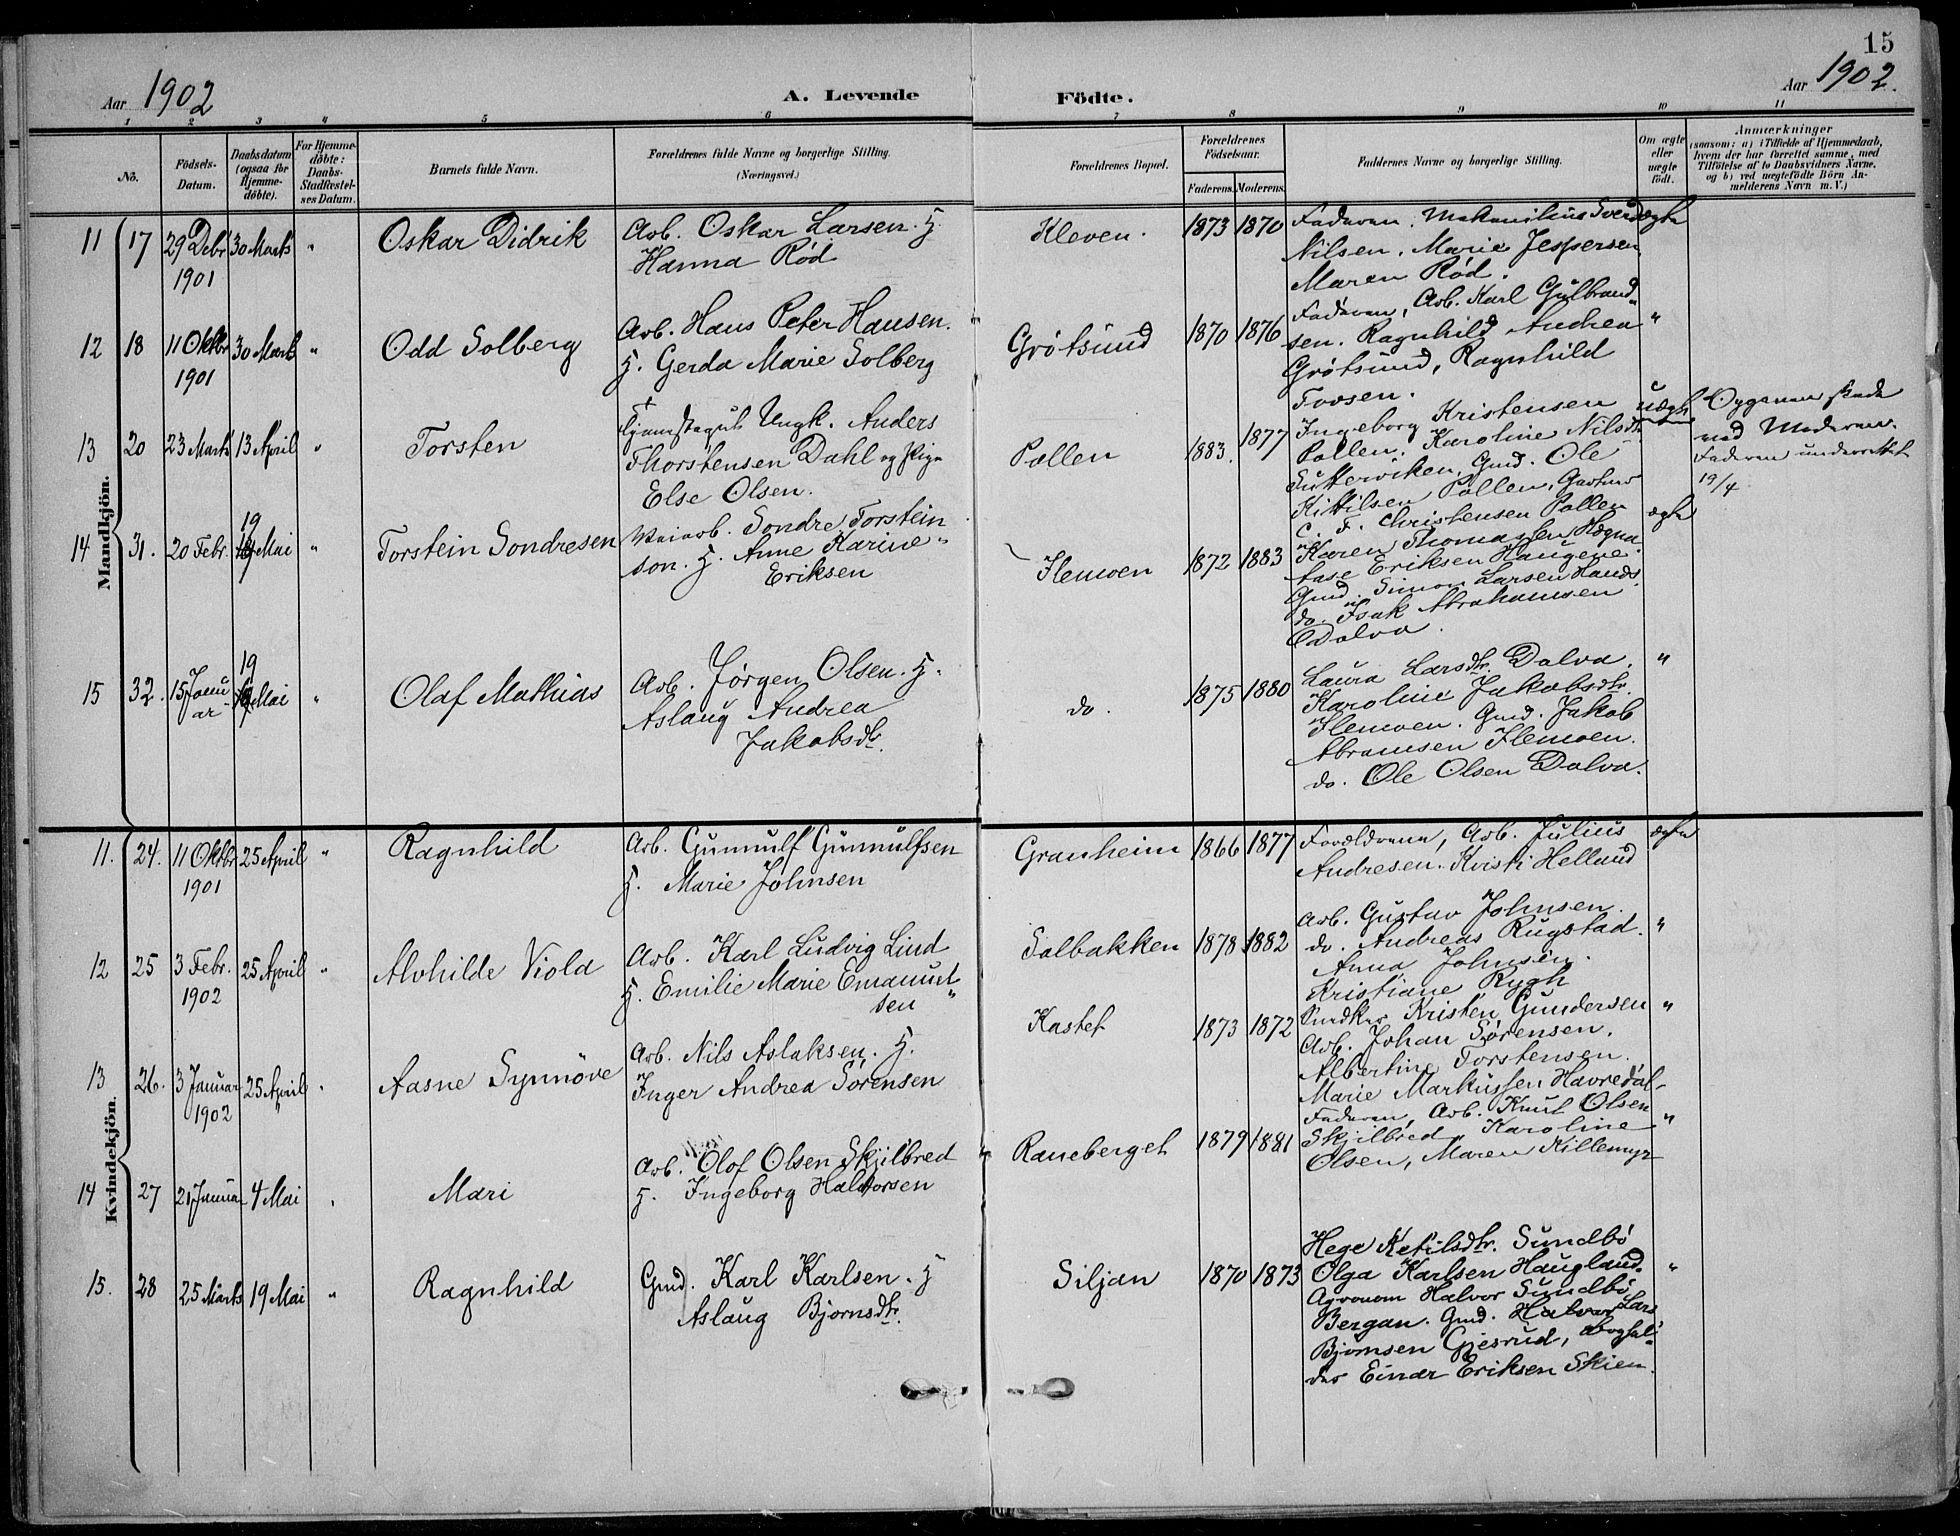 15
Aar 1902
A. Levende
Födte.
Aar 1902.
1 2 3 4 5 6 7 8 9 10 11
No.
Födsels-
Datum.
Daabsdatum
(ogsaa for
Hjemme-
døbte).
For Hjemme-
døbte:
Daabs-
Stadfæstel-
ses Datum.
Barnets fulde Navn.
Forældrenes fulde Navne og borgerlige Stilling.
(Næringsvei.)
Forældrenes Bopæl.
Forældrenes
Födselsaar.
Faderens. Moderens.
Faddernes Navne og borgerlige Stilling.
Om ægte
eller
uægte
født.
Anmærkninger
(saasom: a) i Tilfælde af Hjemmedaab,
hvem der har forrettet samme, med
Tilføielse af to Daabsvidners Navne.
og b) ved uægtefødte Börn An-
melderens Navn m. V.)
Mandkjön.
11 17 29 Debr 1901 30 Marts " Oskar Didrik
Arb. Oskar Larsen. H.
Hanna Rød
Kleven. 1873 1870
Faderen. Sverd
Nilsen. Marie Jespersen
Maren Rød.
ægte
12 18 11 Oktbr 1901 30 Marts " Odd Solberg
Arb. Hans Peter Hansen.
H. Gerda Marie Solberg
Grøtsund 1870 1876
Faderen, Arb. Karl Gulbrand-
sen. Ragnhild Andrea
Grøtsund, Ragnhild
Tovsen.
"
13 20 23 Marts 13 April " Torsten
Ungk. Anders
Thorstensen Dahl og Pige
Else Olsen.
Pollen 1883. 1877
Ingeborg Kristensen
Pollen. Karoline Nilsdtr
Gmd. Ole
Kittilsen Pollen, Gartner
C. F. Christensen Pollen
uægte
med Moderen.
Faderen underrettet
19/4
14 31. 20 Febr. 19 Mai " Torstein Sondresen
Veiarb. Sondre Torstein
son. H. Anne Karine
Eriksen
Flemoen 1872 1883
Karen Thomassen Høgna
Aase Eriksen Haugene.
Gmd. Simon Larsen
do. Isak Abrahamsen
Dalva.
ægte
15 32. 15 Janu
ar 19 Mai " Olaf Mathias
Arb. Jørgen Olsen. H.
Aslaug Andrea
Jakobsdtr.
do. 1875 1880
Laura Larsdtr. Dalva.
Karoline Jakobsdtr.
Flemoen. Gmd. Jakob
Abramsen Flemoen.
do. Ole Olsen Dalva.
"
Kvindekjön.
11. 24. 11 Oktbr 1901 25 April " Ragnhild
Arb. Gunnulf Gunnulfsen
H. Marie Johnsen
Granheim 1866 1877
Forældrene, Arb. Julius
Andresen. Kristi Helland
ægte
12 25 3 Febr. 1902 25 April " Alvhilde Viola
Arb. Karl Ludvig Lind
H. Emilie Marie Emanuel
sen "
Solbakken 1878 1882
Arb. Gustav Johnsen.
do. Andreas Rugstad.
Anna Johnsen.
Kristiane Rygh
"
13 26. 3 Januar 1902 25 April " Aasne Synnöve
Arb. Nils Aslaksen. H.
Inger Andrea Sørensen
Kastet 1873 1872
Snedker Kristen Gundersen
Arb. Johan Sørensen.
Albertine Torstensen.
Marie Markussen Havredal
"
14 27 21 Januar 4 Mai " Mari
Arb. Olof Olsen Skjilbred
H. Ingeborg Halvorsen
Raneberget 1879 1881
Faderen, Arb. Knut Olsen
Skjilbred Karoline
Olsen, Maren Killemyr
"
15. 28 25 Marts 19 Mai " Ragnhild
Gmd. Karl Karlsen. H
Aslaug Bjørnsdtr.
Siljan 1870 1873
Hege Ketilsdtr. Sundbö
Olga Karlsen Haugland.
Agronom Halvor Sundbö,
Bergan. Gmd. Halvor Lars
Bjørnsen Gjesrud,
der Einar Eriksen Skien.
"